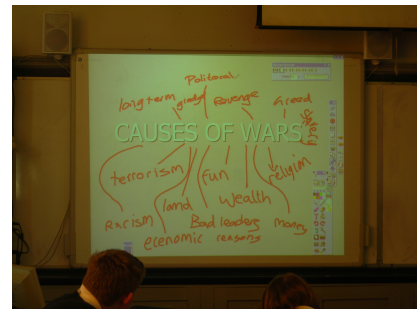 Political
long term grudge Revenge Greed
slavery
CAUSES OF WARS
terrorism fun religion
land Wealth
Racism Bad leaders money
economic reasons